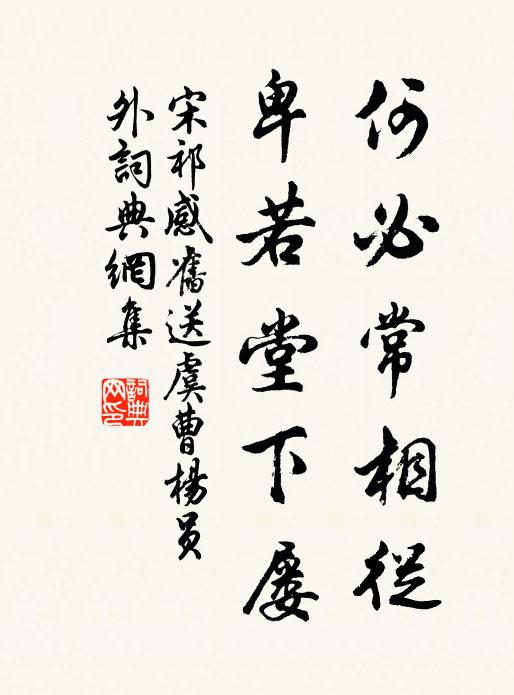 何必常相從
卑若堂下屨
宋祁感舊送虞曹楊員
外詞典網集
詞典
网印